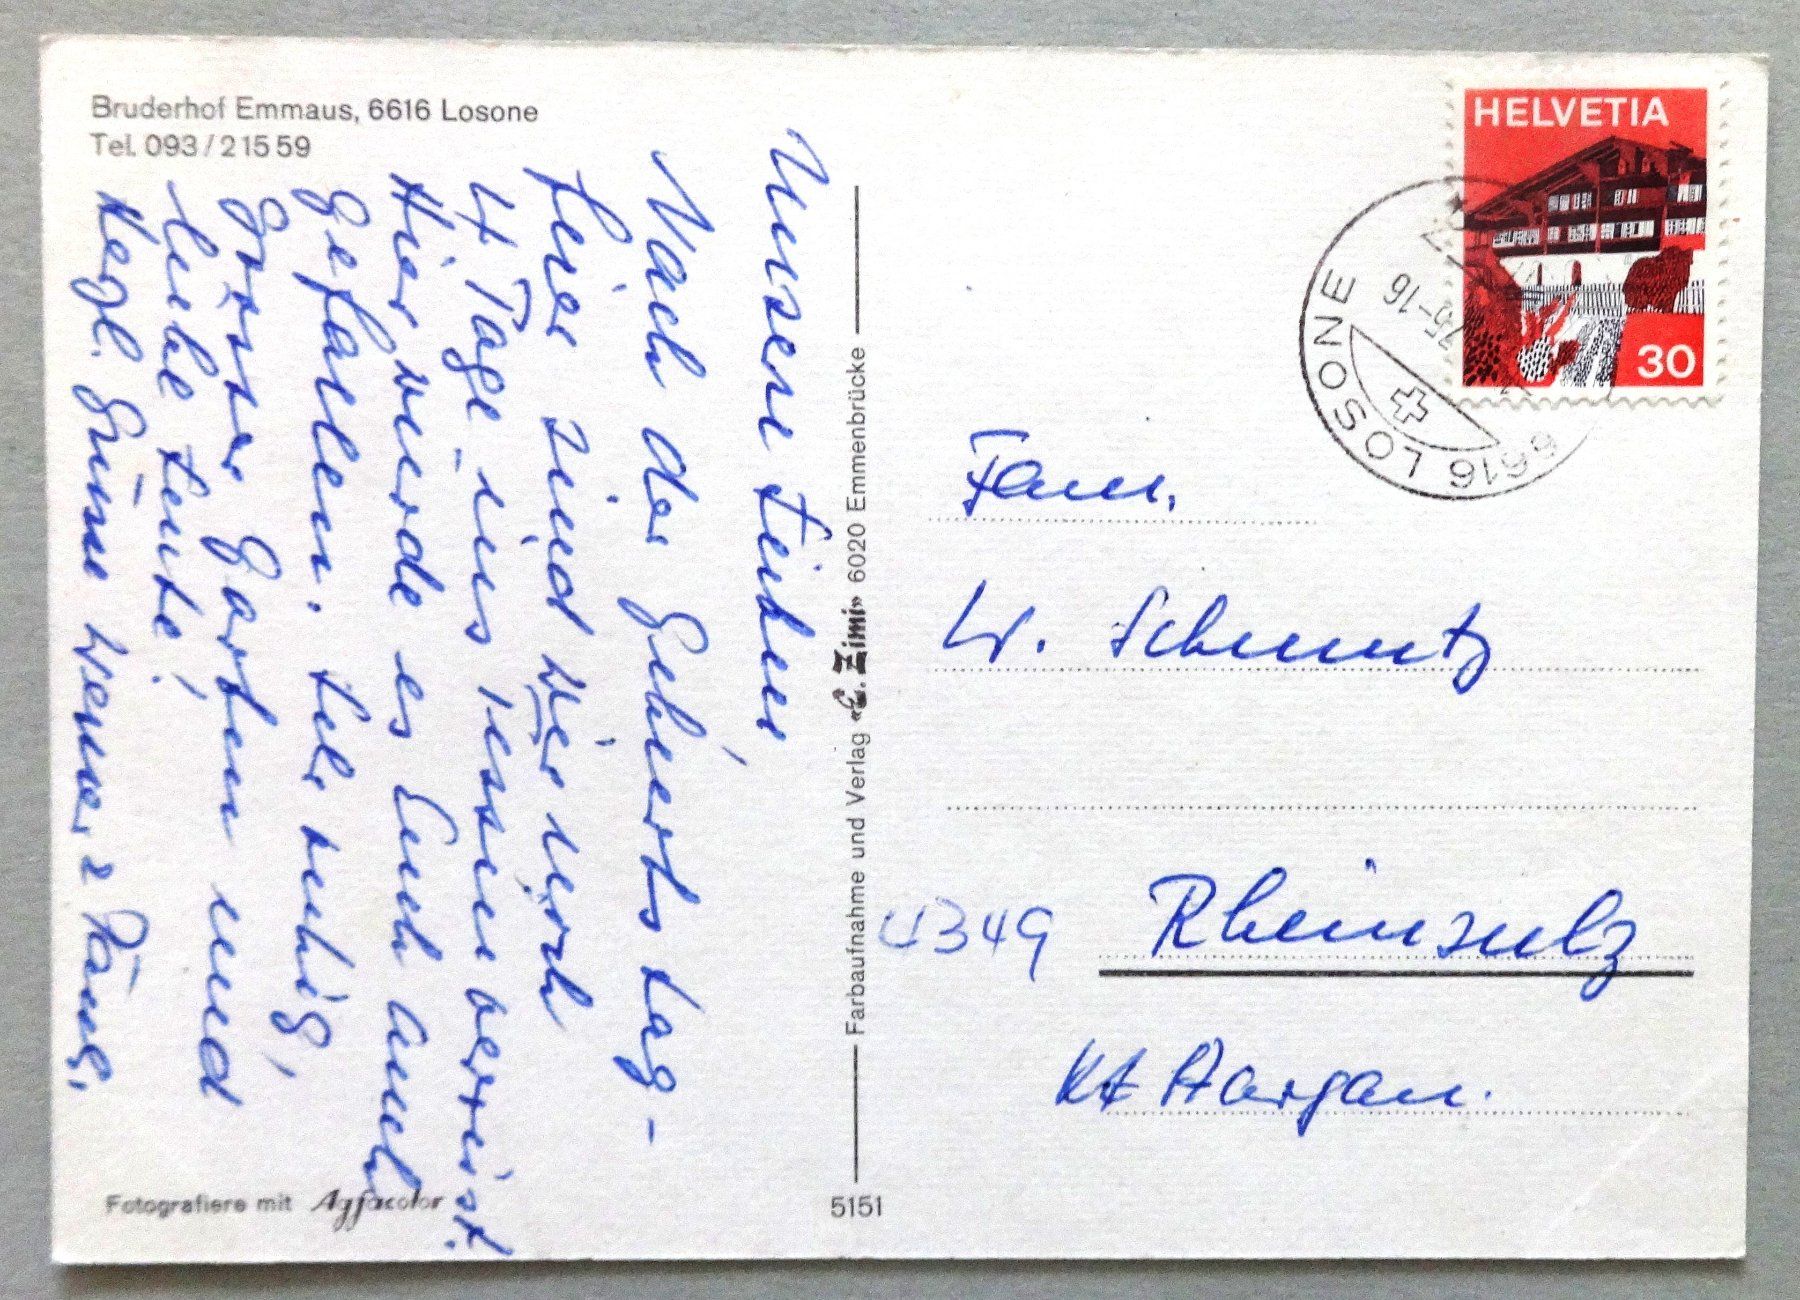 Bruderhof Emmaus, 6616 Losone
Tel. 093/21559
Unsere Lieben
Nach der Geburtstag-
feier sind wir noch
4 Tage ins Tessin verreist.
Hier würde es Euch auch
gefallen. Sehr ruhig,
grosser Garten und
liebe Leute!
Herzl. Grüsse Werner &
Fotografiere mit Agfacolor
5151
Farbaufnahme und Verlag «E. Zimi» 6020 Emmenbrücke
HELVETIA
30
6616 LOSONE
Fam.
W. Schmutz
4349 Rheinsulz
Kt Aargau.